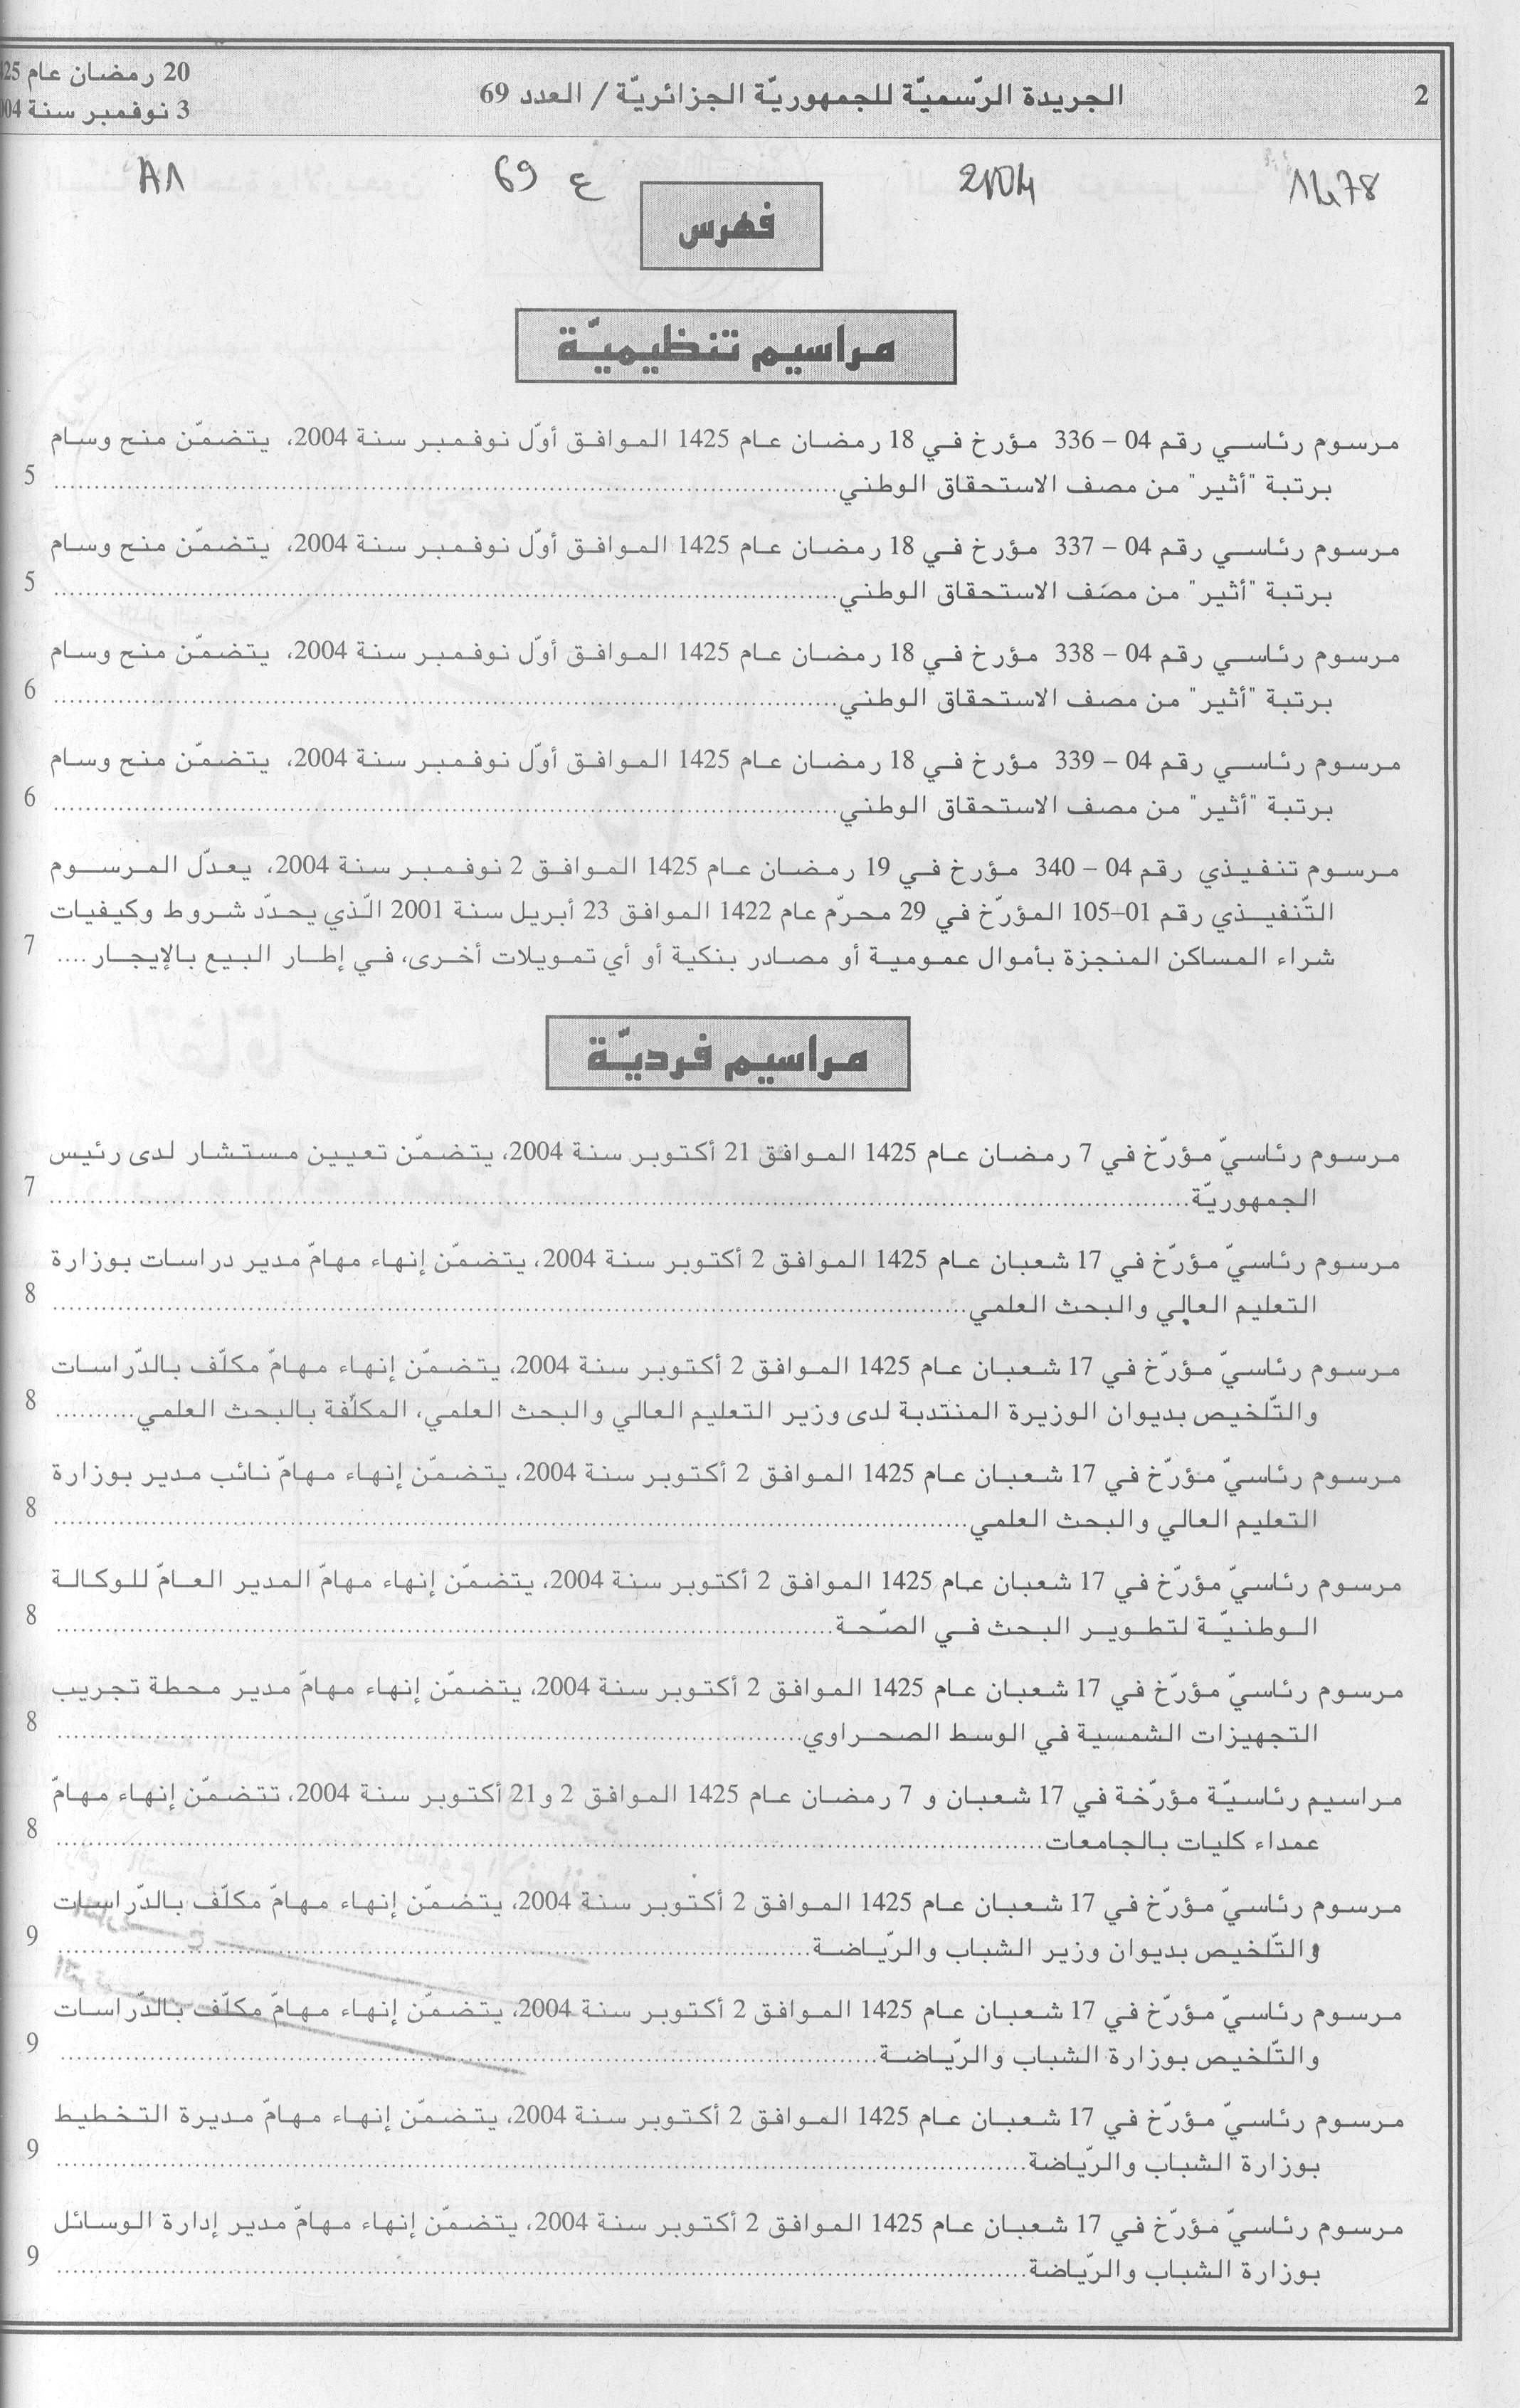 2
الجريدة الرّسميّة للجمهوريّة الجزائريّة / العدد 69
20 رمضان عام
3 نوفمبر سنة
1478
2004
ع 69
A1
فهرس
مراسيم تنظيميّة
مرسوم رئاسي رقم 04 – 336 مؤرخ في 18 رمضان عام 1425 الموافق أوّل نوفمبر سنة 2004، يتضمّن منح وسام
برتبة "أثير" من مصف الاستحقاق الوطني.......... 5
مرسوم رئاسي رقم 04 – 337 مؤرخ في 18 رمضان عام 1425 الموافق أوّل نوفمبر سنة 2004، يتضمّن منح وسام
برتبة "أثير" من مصف الاستحقاق الوطني.......... 5
مرسوم رئاسي رقم 04 – 338 مؤرخ في 18 رمضان عام 1425 الموافق أوّل نوفمبر سنة 2004، يتضمّن منح وسام
برتبة "أثير" من مصف الاستحقاق الوطني.......... 6
مرسوم رئاسي رقم 04 – 339 مؤرخ في 18 رمضان عام 1425 الموافق أوّل نوفمبر سنة 2004، يتضمّن منح وسام
برتبة "أثير" من مصف الاستحقاق الوطني.......... 6
مرسوم تنفيذي رقم 04 – 340 مؤرخ في 19 رمضان عام 1425 الموافق 2 نوفمبر سنة 2004، يعدّل المرسوم
التّنفيذي رقم 01–105 المؤرّخ في 29 محرّم عام 1422 الموافق 23 أبريل سنة 2001 الّذي يحدّد شروط وكيفيات
شراء المساكن المنجزة بأموال عمومية أو مصادر بنكية أو أي تمويلات أخرى، في إطار البيع بالإيجار .... 7
مراسيم فرديّة
مرسوم رئاسيّ مؤرّخ في 7 رمضان عام 1425 الموافق 21 أكتوبر سنة 2004، يتضمّن تعيين مستشار لدى رئيس
الجمهوريّة.......... 7
مرسوم رئاسيّ مؤرّخ في 17 شعبان عام 1425 الموافق 2 أكتوبر سنة 2004، يتضمّن إنهاء مهامّ مدير دراسات بوزارة
التعليم العالي والبحث العلمي.......... 8
مرسوم رئاسيّ مؤرّخ في 17 شعبان عام 1425 الموافق 2 أكتوبر سنة 2004، يتضمّن إنهاء مهامّ مكلّف بالدّراسات
والتّلخيص بديوان الوزيرة المنتدبة لدى وزير التعليم العالي والبحث العلمي، المكلّفة بالبحث العلمي.......... 8
مرسوم رئاسيّ مؤرّخ في 17 شعبان عام 1425 الموافق 2 أكتوبر سنة 2004، يتضمّن إنهاء مهامّ نائب مدير بوزارة
التعليم العالي والبحث العلمي.......... 8
مرسوم رئاسيّ مؤرّخ في 17 شعبان عام 1425 الموافق 2 أكتوبر سنة 2004، يتضمّن إنهاء مهامّ المدير العامّ للوكالة
الوطنيّة لتطوير البحث في الصّحة.......... 8
مرسوم رئاسيّ مؤرّخ في 17 شعبان عام 1425 الموافق 2 أكتوبر سنة 2004، يتضمّن إنهاء مهامّ مدير محطة تجريب
التجهيزات الشمسية في الوسط الصحراوي.......... 8
مراسيم رئاسيّة مؤرّخة في 17 شعبان و 7 رمضان عام 1425 الموافق 2 و21 أكتوبر سنة 2004، تتضمّن إنهاء مهامّ
عمداء كليات بالجامعات.......... 8
مرسوم رئاسيّ مؤرّخ في 17 شعبان عام 1425 الموافق 2 أكتوبر سنة 2004، يتضمّن إنهاء مهامّ مكلّف بالدّراسات
والتّلخيص بديوان وزير الشباب والرّياضة.......... 9
مرسوم رئاسيّ مؤرّخ في 17 شعبان عام 1425 الموافق 2 أكتوبر سنة 2004، يتضمّن إنهاء مهامّ مكلّف بالدّراسات
والتّلخيص بوزارة الشباب والرّياضة.......... 9
مرسوم رئاسيّ مؤرّخ في 17 شعبان عام 1425 الموافق 2 أكتوبر سنة 2004، يتضمّن إنهاء مهامّ مديرة التخطيط
بوزارة الشباب والرّياضة.......... 9
مرسوم رئاسيّ مؤرّخ في 17 شعبان عام 1425 الموافق 2 أكتوبر سنة 2004، يتضمّن إنهاء مهامّ مدير إدارة الوسائل
بوزارة الشباب والرّياضة.......... 9